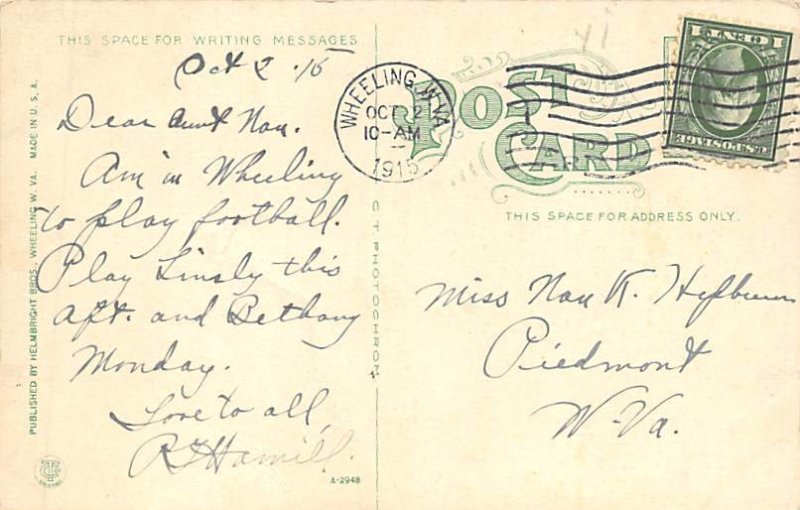 THIS SPACE FOR WRITING MESSAGES
Oct 2 '15
Dear Aunt Nan.
Am in Wheeling
to play football.
Play Linsly this
Aft. and Bethany
Monday.
Love to all,
Hamill.
PUBLISHED BY HELMBRIGHT BROS., WHEELING W. VA. MADE IN U.S.A.
A-2948
C T PHOTOCHROM
WHEELING, W.VA.
OCT 2
10-AM
1915
POST
CARD
THIS SPACE FOR ADDRESS ONLY.
U.S. POSTAGE
1 CENT 1
Miss Nan K. Hepburn
Piedmont
W-Va.